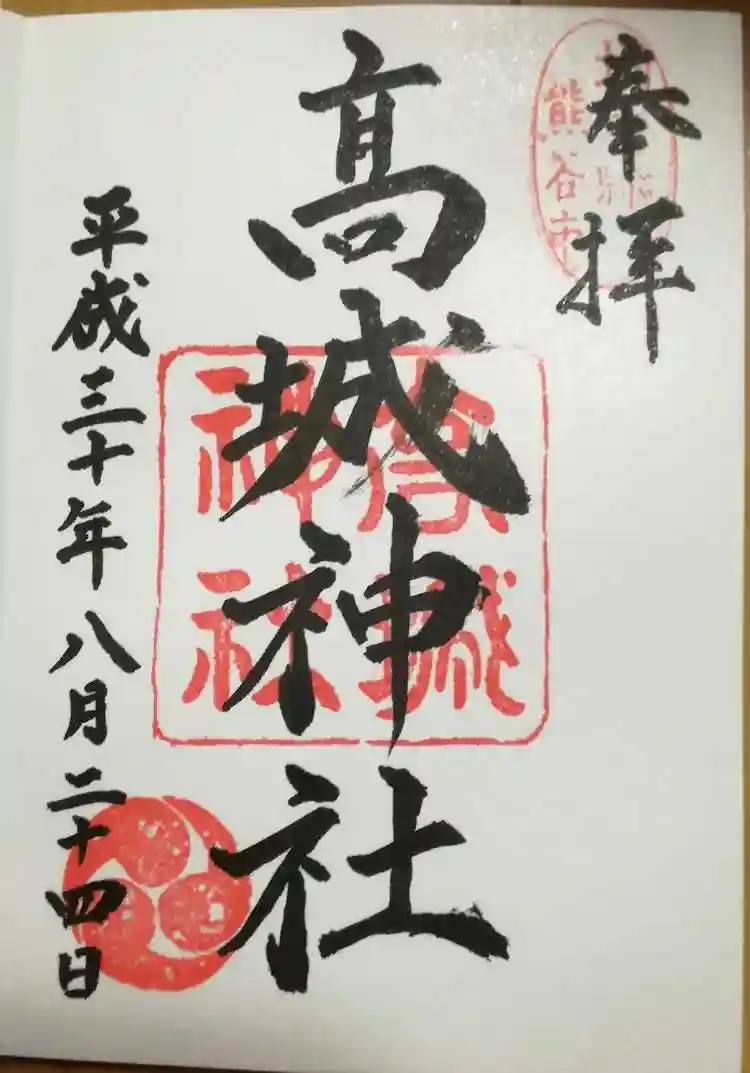 奉拝
熊谷市
髙城神社
高城
神社
平成三十年八月二十四日